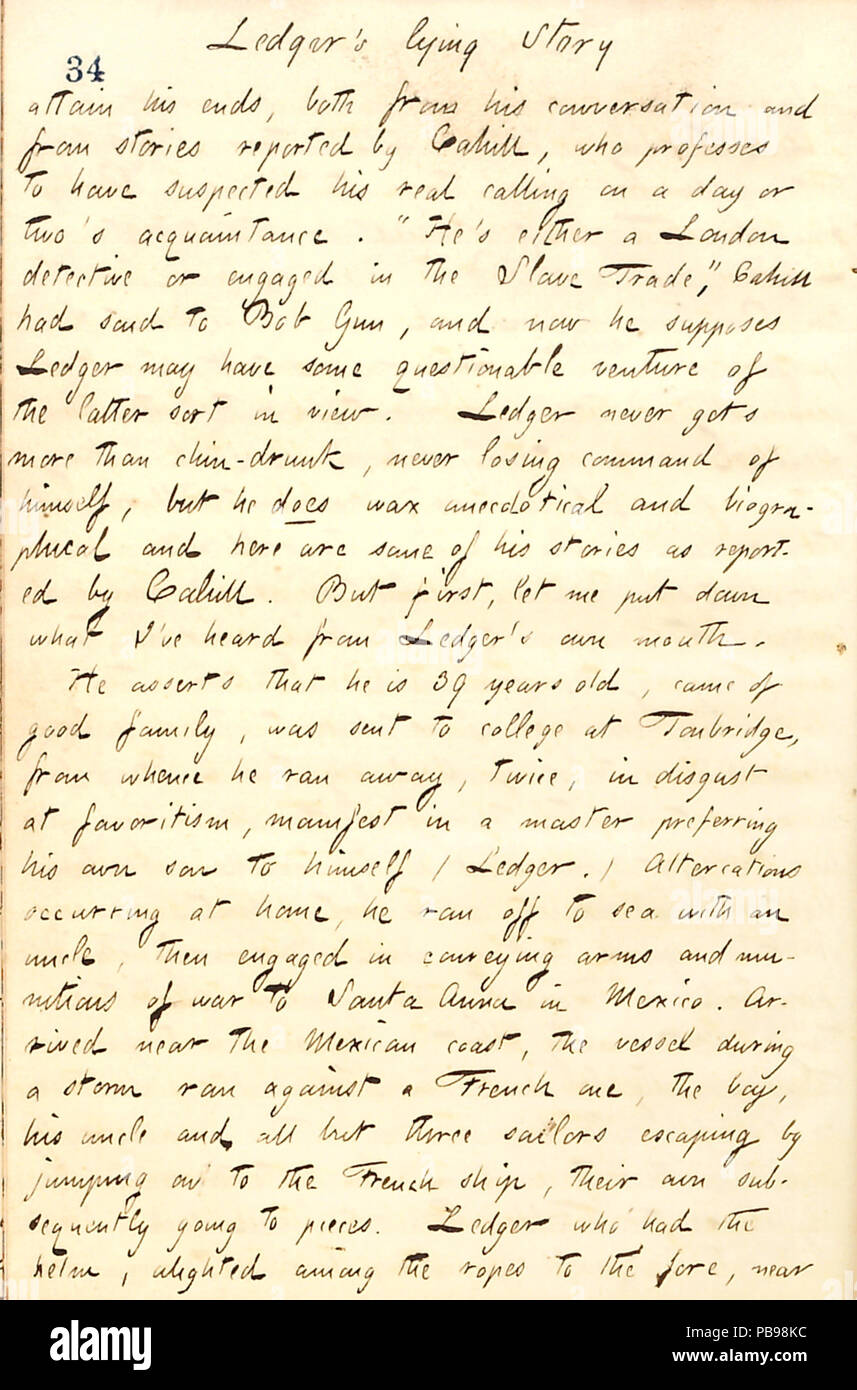 Ledger's lying Story
34
attain his ends, both from his conversation and
from stories reported by Cahill, who professes
to have suspected his real calling on a day or
two's acquaintance. "He's either a London
detective or engaged in the Slave Trade," Cahill
had said to Bob Gun, and now he supposes
Ledger may have some questionable venture of
the latter sort in view. Ledger never gets
more than chin-drunk, never losing command of
himself, but he does wax anecdotical and biogra-
phical and here are some of his stories as report-
ed by Cahill. But first, let me put down
what I've heard from Ledger's own mouth.
He asserts that he is 39 years old, came of
good family, was sent to college at Tonbridge,
from whence he ran away, twice, in disgust
at favoritism, manifest in a master preferring
his own son to himself (Ledger.) Altercations
occurring at home, he ran off to sea with an
uncle, then engaged in conveying arms and mu-
nitions of war to Santa Anna in Mexico. Ar-
rived near the Mexican coast, the vessel during
a storm ran against a French one, the boy,
his uncle and all but three sailors escaping by
jumping on to the French ship, their own sub-
sequently going to pieces. Ledger who had the
helm, alighted among the ropes to the fore, near
alamy
Image ID: PB98KC
www.alamy.com